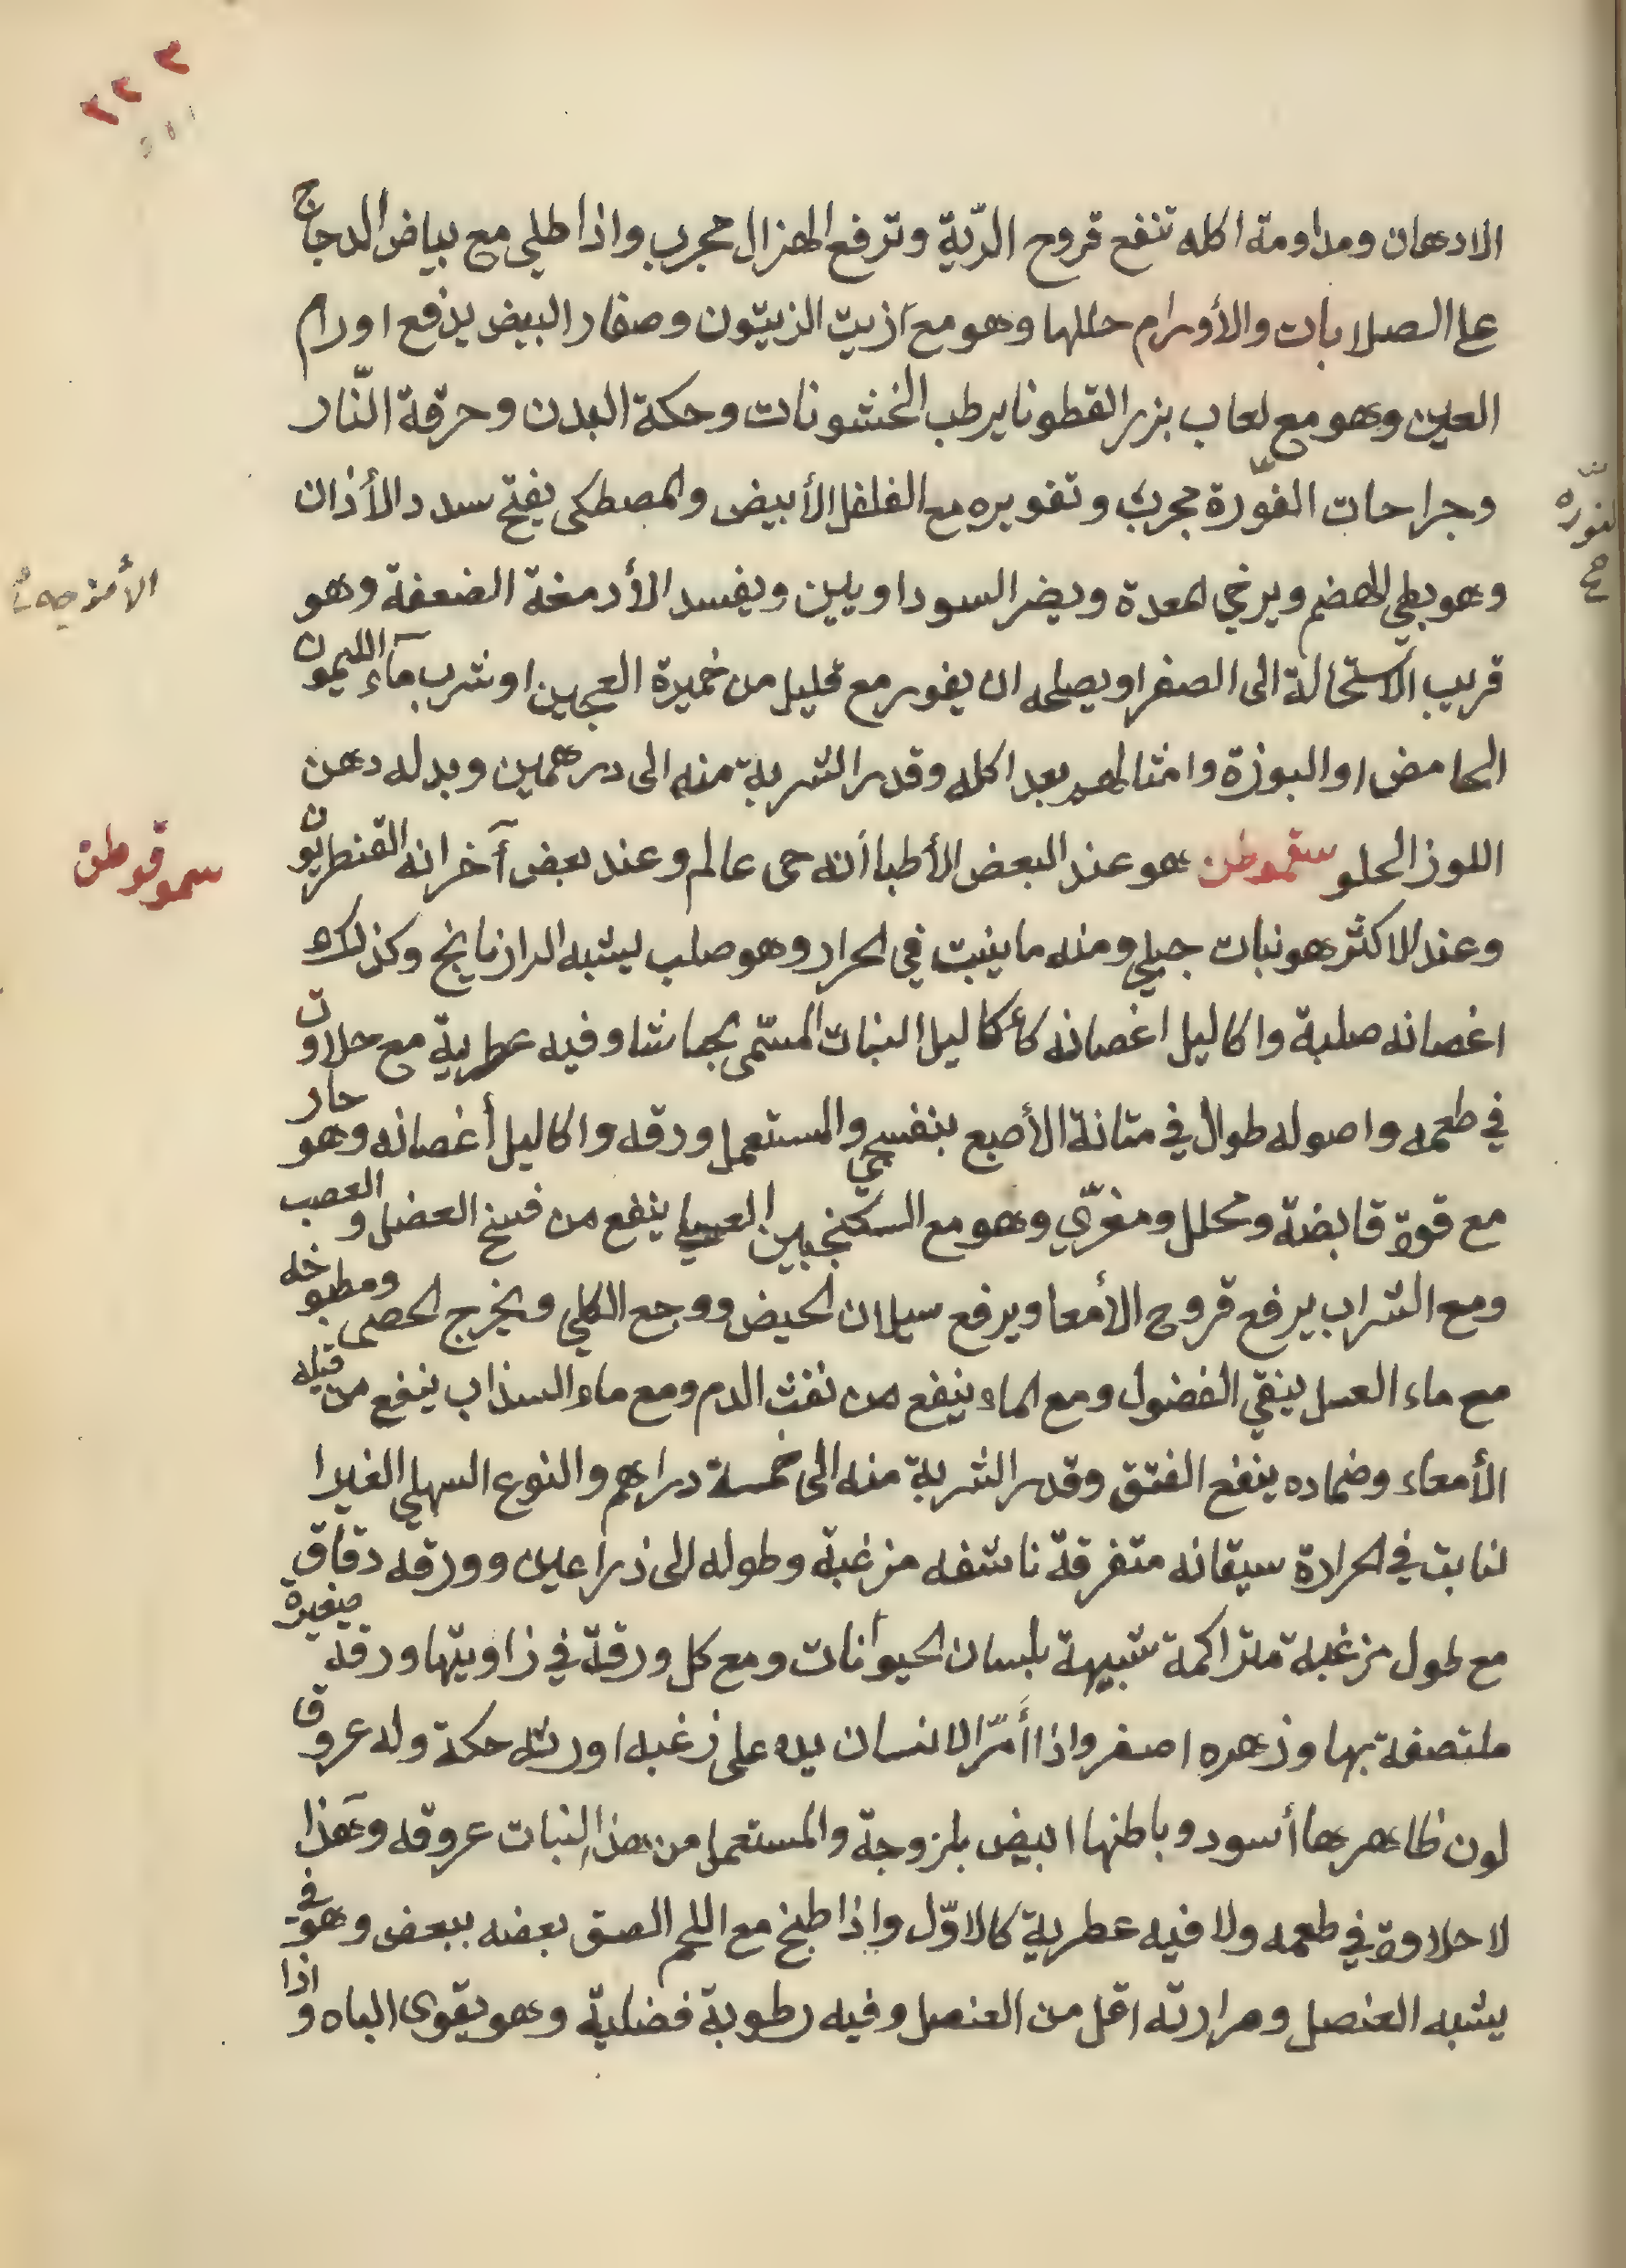 ٢٢٢
الادهان ومداومة اكله تنفع قروح الرّية وترفع الهزال مجرب واذا طلي مع بياض الدجاج
على الصلابات والأورام حللها وهو مع زيت الزيتون وصفار البيض يدفع اورام
العين وهو مع لعاب بزر القطونا يرطب الخشونات وحكة البدن وحرقة النّار
وجراحات الفوّرة مجرب وتفويره مع الفلفل الأبيض والمصطكى يفتح سدد الأذان
لنوّره
صح
وهو بطي الهضم ويرخي المعدة ويضر السودا ويلين ويفسد الأدمغة الضعفة وهو
الأمزجه
قريب الاستحالة الى الصفرا ويصلحه ان يفور مع قليل من خميرة العجين او شرب مآء الليمون
الحامض او البوزة وامثالهم بعد اكله وقدر الشربة منه الى درهمين وبدله دهن
اللوز الحلو سقموطن هو عند البعض الأطبا أنه حى عالم وعند بعض آخر انه القنطريون
سموقوطن
وعند الاكثر هو نبات جبلي ومنه ما ينبت في الحرار وهو صلب يشبه الرازنايخ وكذلك
اغصانه صلبة واكاليل اغصانه كأكاليل النبات المسّمى بجهاشا وفيه عطرية مع حلاوت
في طعمه واصوله طوال في متانة الأصبع بنفسجي والمستعمل ورقه واكاليل أغصانه وهو حار
مع قوة قابضة ومحلل ومغرّي وهو مع السكنجبين العسيا ينفع من فسخ العضل والعصب
ومع الشراب يرفع قروح الأمعا ويرفع سيلان الحيض ووجع الكلي ويخرج الحصى ومطبوخه
مع ماء العسل ينقي الفضول ومع الماء ينفع من نفث الدم ومع ماء السذاب ينفع من قيلة
الأمعاء وضماده ينفع الفتق وقدر الشربة منه الى خمسة دراهم والنوع السهلي الغيرا
لنابت في الحرادة سيقانه متفرقة ناشفه مزغبة وطوله الى ذراعين وورقه دقاق
مع طول مزغبة متراكمة شبيهة بلسان الحيوانات ومع كل ورقة في زاويتها ورقة صغيرة
ملتصفة بها وزهره اصفر واذا أَمَّر الانسان يده على زغبه اورثه حكة وله عروق
لون ظاهرها أسود وباطنها ابيض بلزوجة والمستعمل من هذا النبات عروقه وهذا
لا حلاوة في طعمه ولا فيه عطرية كالاوّل واذا طبخ مع اللحم الصق بعضه ببعض وهو في
يشبه العنصل ومرارته اقل من العنصل وفيه رطوبة فضلية وهو يقوى الباه واذا